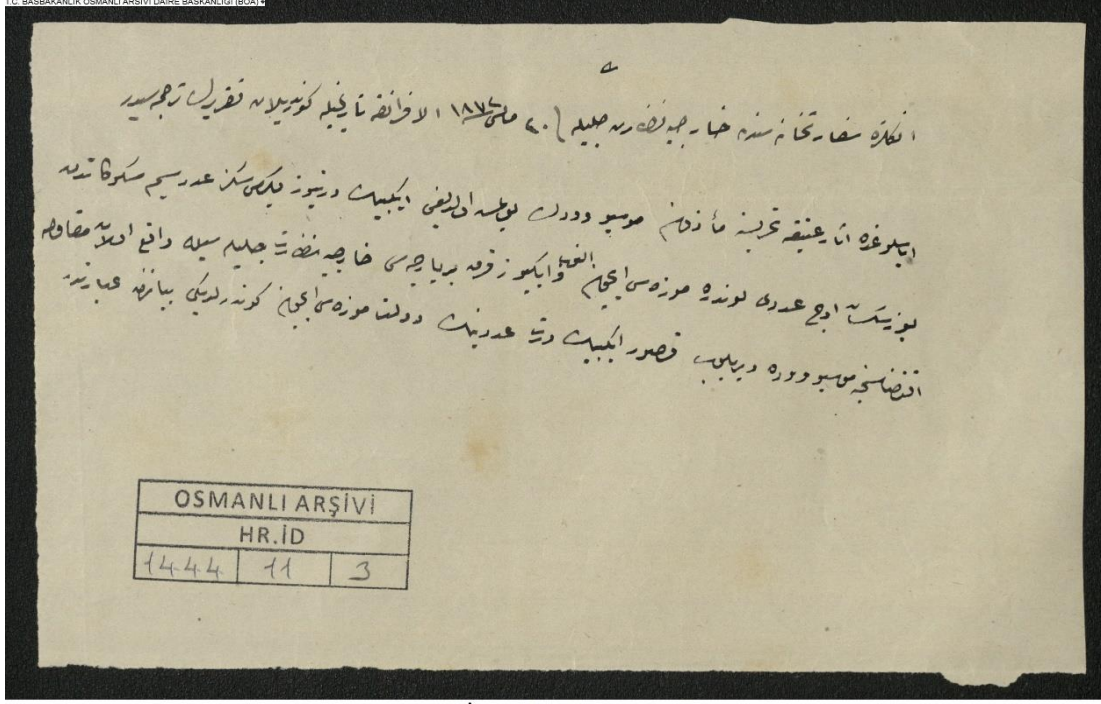 T.C. BAŞBAKANLIK OSMANLI ARŞİVİ DAİRE BAŞKANLIĞI (BOA)
انكلتره سفارتخانه سندن خارجيه نظارت جليله سنه ٢٠ مايس ١٨٧٢ الافرانقه تاريخيله كوندريلان تقريرك ترجمه سيدر
اياسلوغده اثار عتيقه تحريسنه مأذون موسيو وودك بولمش اولديغى ايكيبيك درتيوز يكرمى سكز عدد سيم مسكوكاتدن
يوز عددى لوندره موزه سى ايچون الفا وايكيوز قرق برپارچه سى خارجيه نظارت جليله سيله واقع اولان مقاوله
اقتضاسنجه موسيو ووده ويريلوب قصور ايكيبيك درت عددينك دولت موزه سى ايچون كوندرلديكى بيانندن عبارتدر
OSMANLI ARŞİVİ
HR.İD
1444 11 3